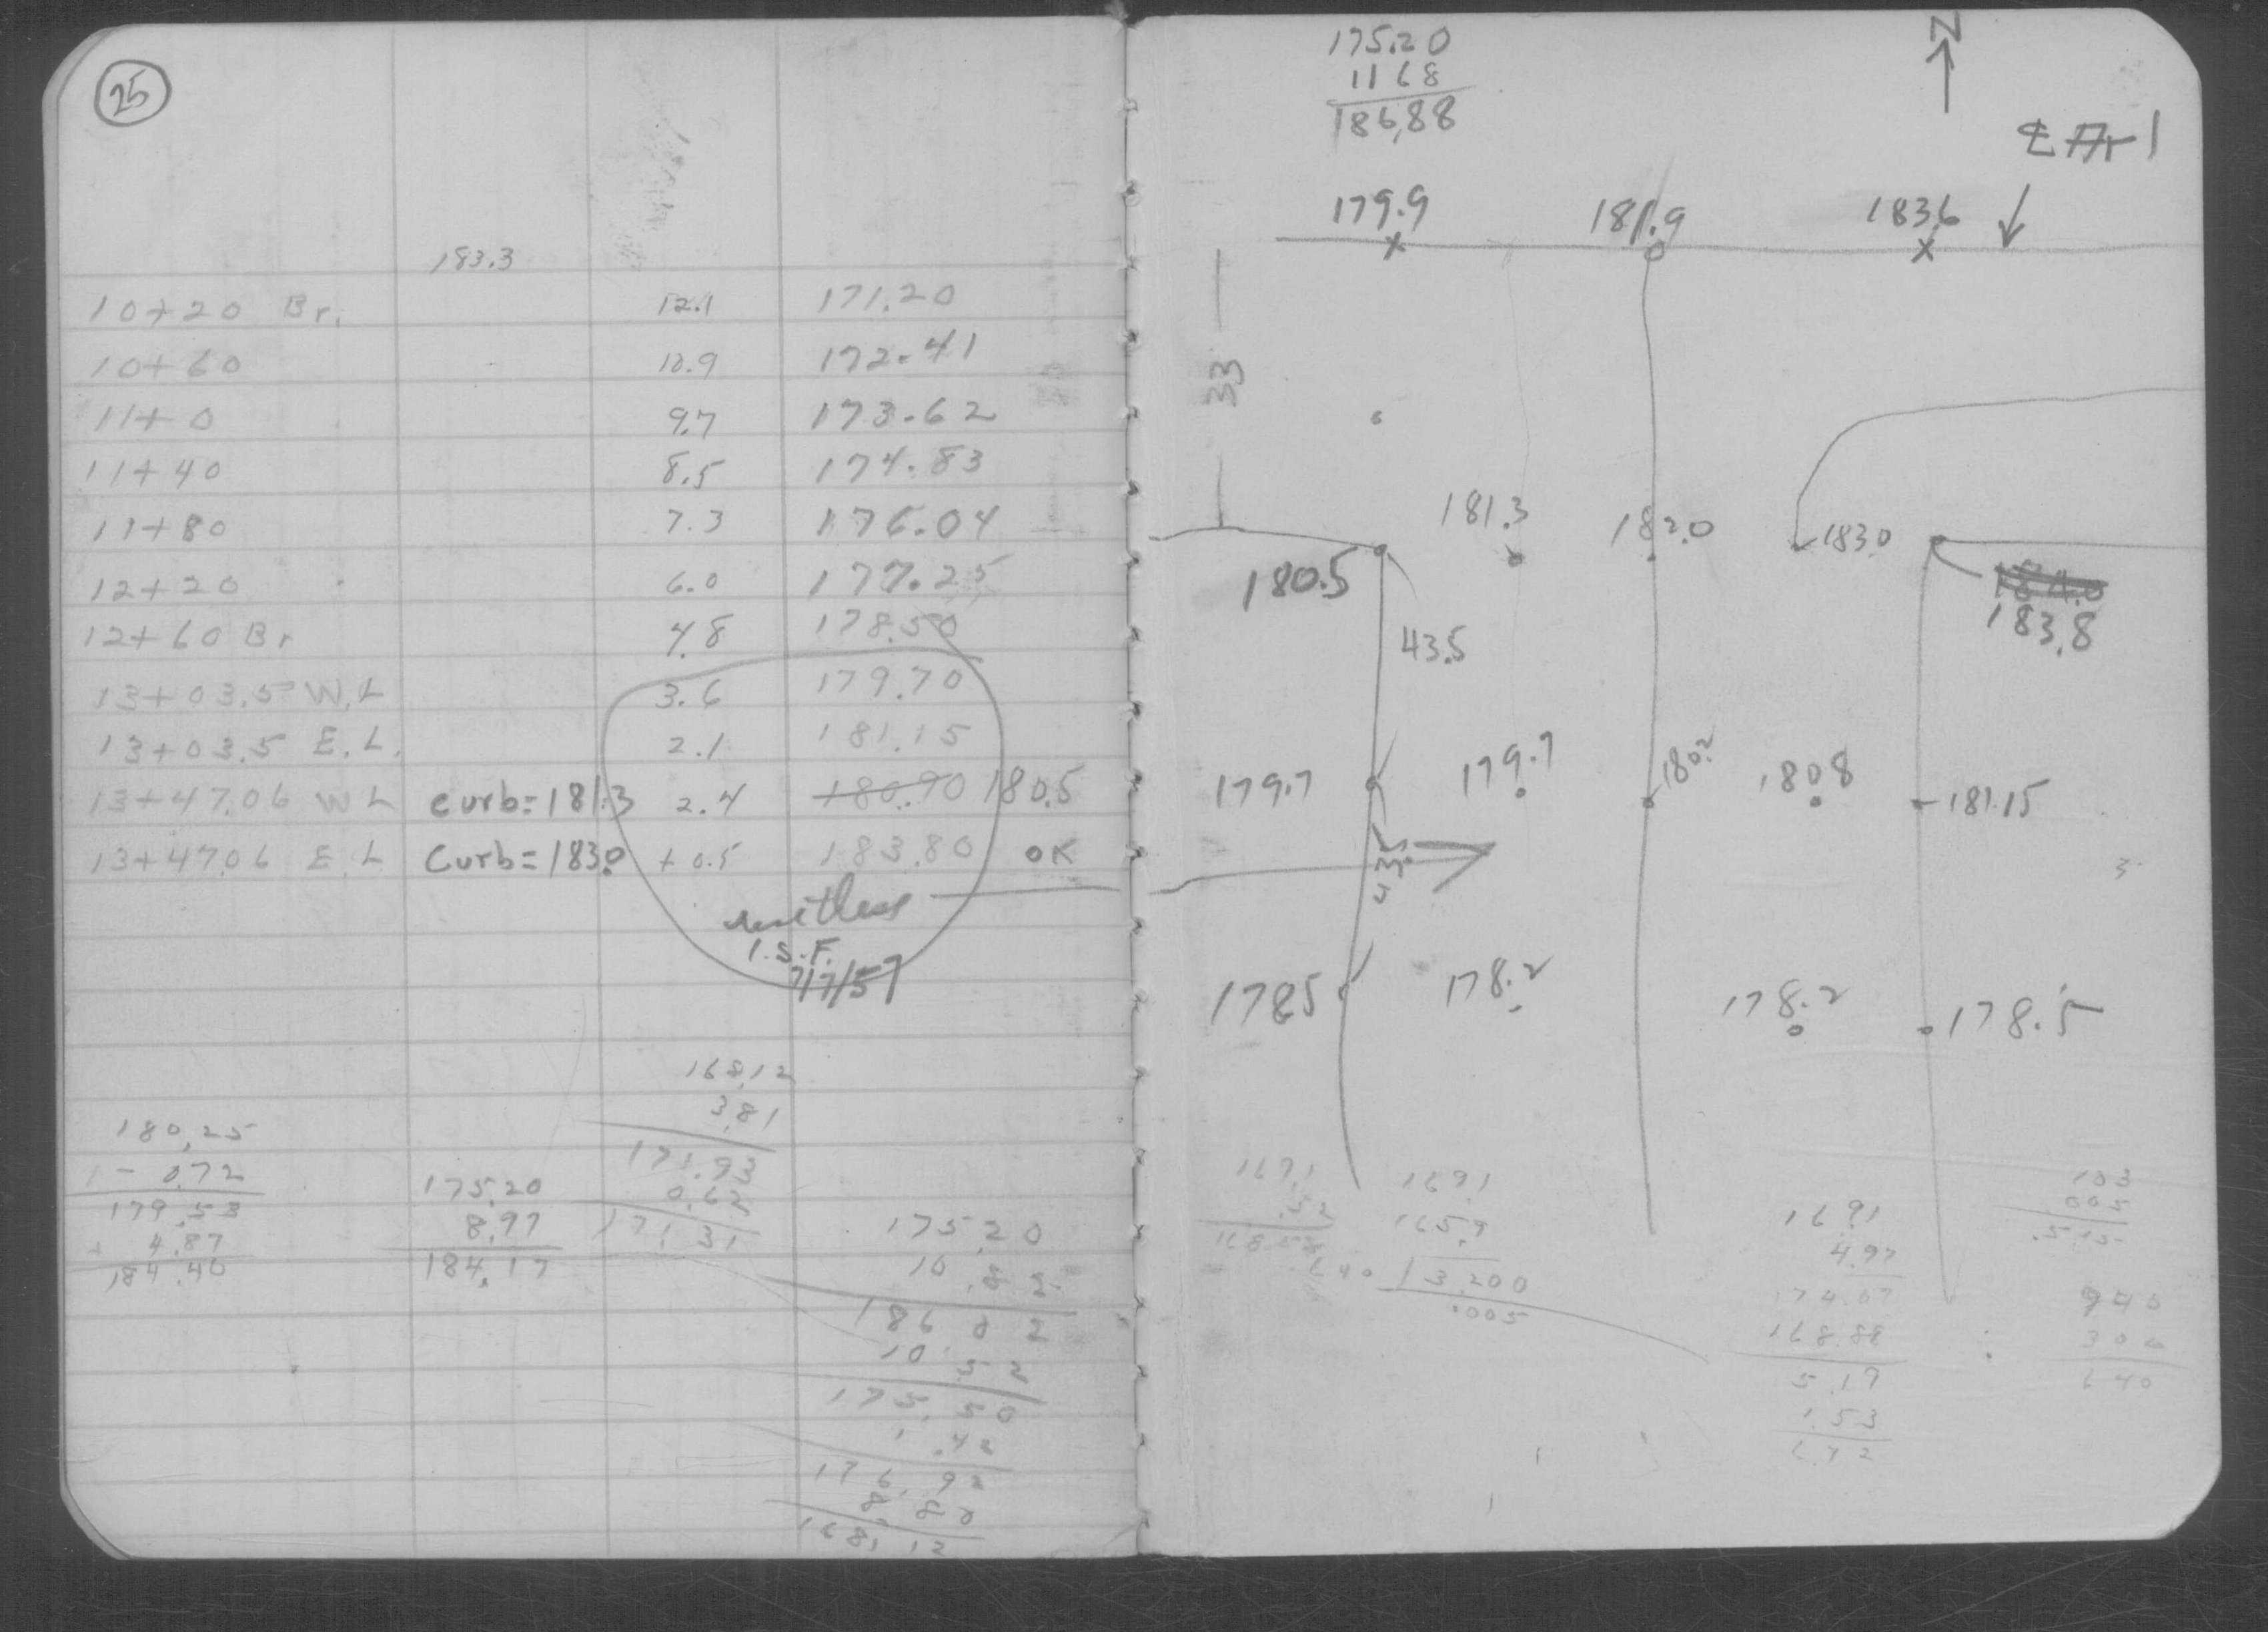 25
183.3
10+20 Br. 12.1 171.20
10+60 10.9 172.41
11+0 9.7 173.62
11+40 8.5 174.83
11+80 7.3 176.04
12+20 6.0 177.25
12+60 Br 4.8 178.50
13+03.5 W.L 3.6 179.70
13+03.5 E.L. 2.1 181.15
13+47.06 W L curb=181.3 2.4 180.70 180.5
13+47.06 E L Curb=183.0 +0.5 183.80 OK
I.S.F.
7/7/57
180.25
- 0.72
179.53
+ 4.87
184.40
175.20
8.97
184.17
168.12
3.81
171.93
0.62
171.31
175.20
10.82
186.02
10.52
175.50
1.42
176.92
8.80
168.12
175.20
1168
186.88
N
179.9 181.9 183.6
33
181.3 182.0 183.0
180.5
184.0
183.8
43.5
179.7 179.7 180.2 180.8 181.15
43.5
178.5 178.2 178.2 178.5
169.1
169.1
165.9
640 3.200
.005
169.1
4.97
174.07
168.88
5.19
1.53
6.72
103
005
.515
940
300
640